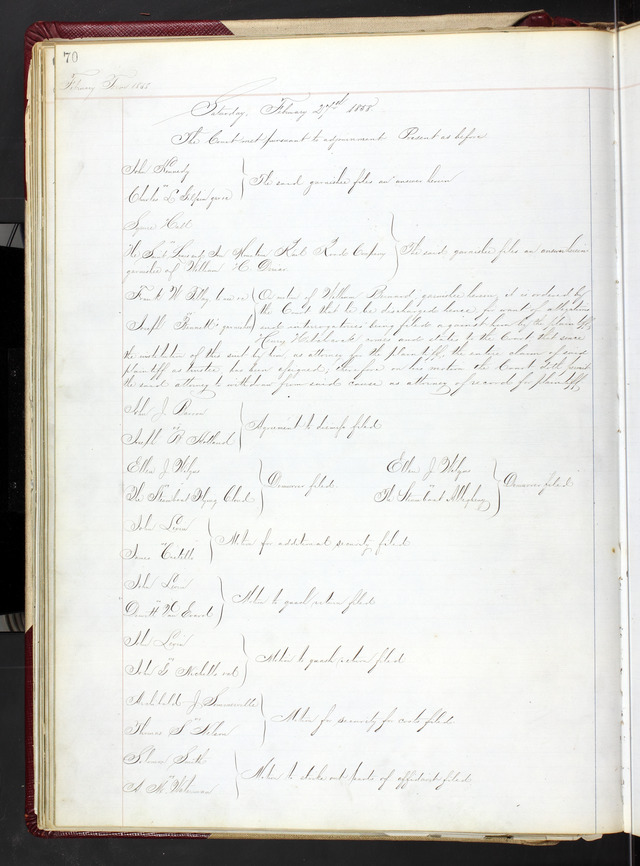 70
February Term 1858
Saturday, February 27th 1858
The Court met pursuant to adjournment Present as before
John Kennedy
vs
Charles L Gilpin garnee } The said garnishee files an answer herein
Squire Hall
vs
garnishee of William H. } The said garnishee files an answer herein
Frank W. trustee { On motion of William Barnard, garnishee herein, it is ordered by
vs the Court that he be discharged hence for want of allegations
Joseph garnishee and interrogatories being filed against him by the plaintiff
Henry comes and states to the Court that since
the institution of this suit by him, as attorney for the plaintiff, the entire claim of said
plaintiff as trustee has been assigned, therefore on his motion the Court doth permit
the said attorney to withdraw from said cause as attorney of record for plaintiff
John J.
vs
Joseph R Holland } Agreement to dismiss filed
Ellen J
vs
The Steamboat Flying Cloud } Demurrer filed
Ellen J
vs
The Steamboat Allegheny } Demurrer filed
John Levin
vs
James } Motion for additional security filed
John Levin
vs
Dewitt Van } Motion to quash return filed
John Levin
vs
John G et al } Motion to quash return filed
Archibald J
vs
Thomas S Nelson } Motion for security for costs filed
Solomon Smith
vs
A M Waterman } Motion to strike out parts of affidavit filed